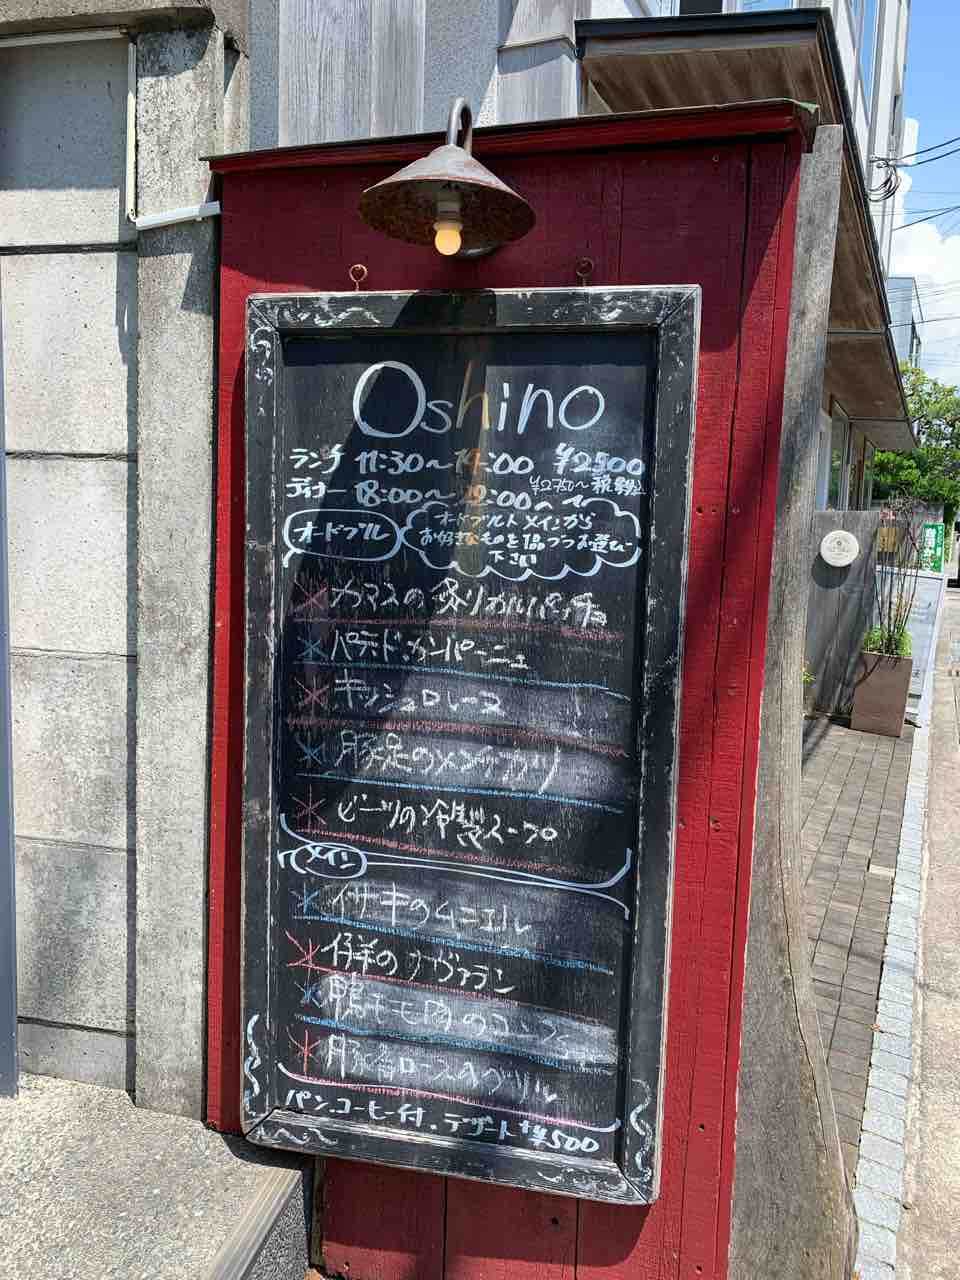 Oshino
ランチ 11:30〜14:00 ¥2500
¥2750〜税込
ディナー 18:00〜22:00
オードブル
オードブルト メインから
お好きなものを1品づつお選び
下さい
カマスの炙りカルパッチョ
パテ・ド・カンパーニュ
キッシュロレーヌ
豚足のメンチカツ
ビーツの冷製スープ
メイン
イサキのムニエル
仔羊のナヴァラン
鴨モモ肉のコンフィ
豚肩ロースのグリル
パン.コーヒー付.デザート+¥500